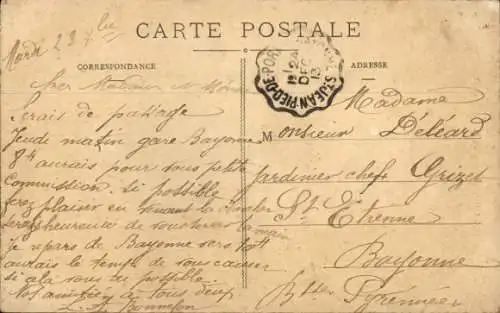 CARTE POSTALE
CORRESPONDANCE
ADRESSE
ST-JEAN-PIED-DE-PORT
DEC
13
Mardi 23
Cher Monsieur et
serais de passage
Jeudi matin gare Bayonne
8h aurais pour vous petite
commission si possible
ferez plaisir en venant la chercher
serais heureuse de vous serrer la main
Je repars de Bayonne vers
aurais le temps de vous causer
si cela vous est possible
Nos amitiés à tous deux
Madame
Monsieur Déléard
jardinier chef Grizet
St Etienne
Bayonne
Btes Pyrénnées